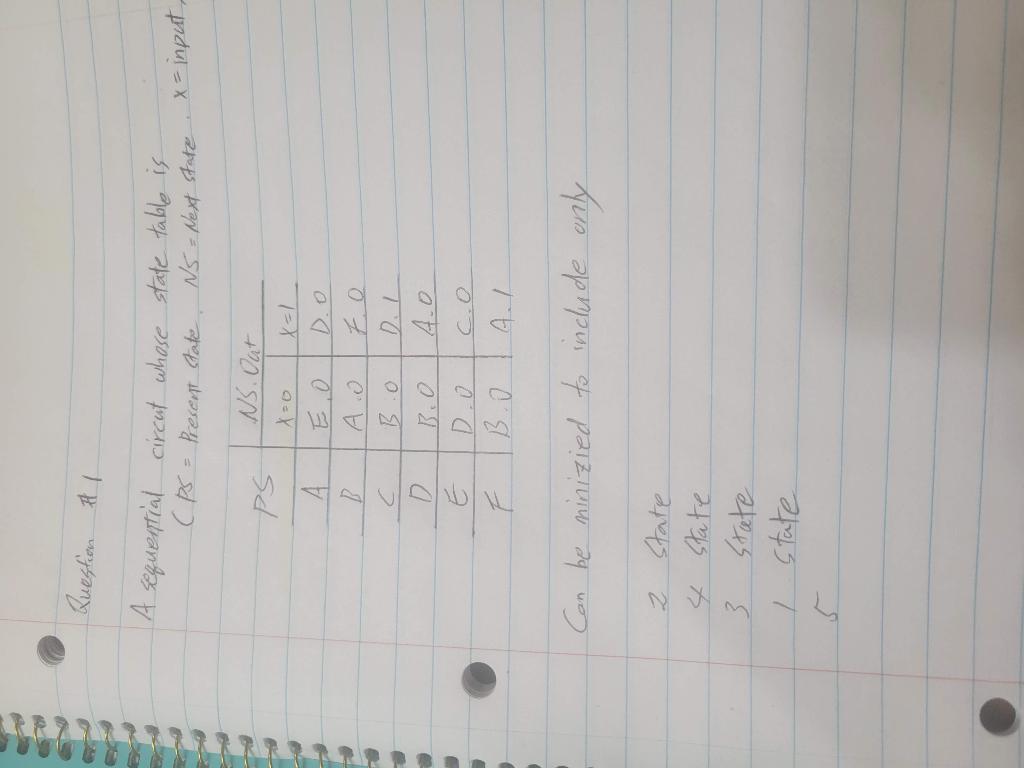 Question #1
A sequential circut whose state table is
(PS = Precent state. NS = Next state. x = input,
PS NS.Out
x=0 x=1
A E.0 D.0
B A.0 F.0
C B.0 D.1
D B.0 A.0
E D.0 C.0
F B.0 A.1
Can be minizied to include only
2 State
4 State
3 State
1 State
5